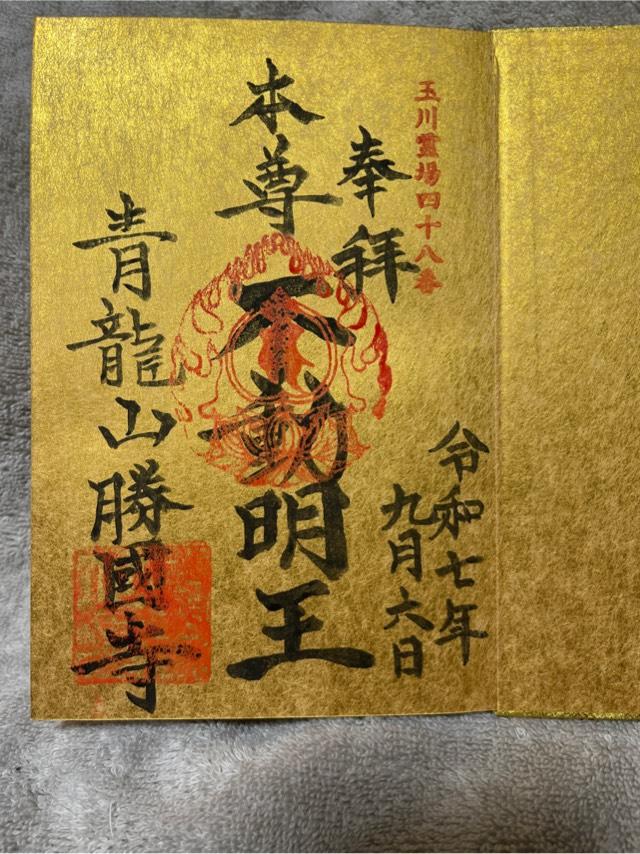 玉川霊場四十八番
奉拝
令和七年
九月六日
本尊不動明王
青龍山勝國寺